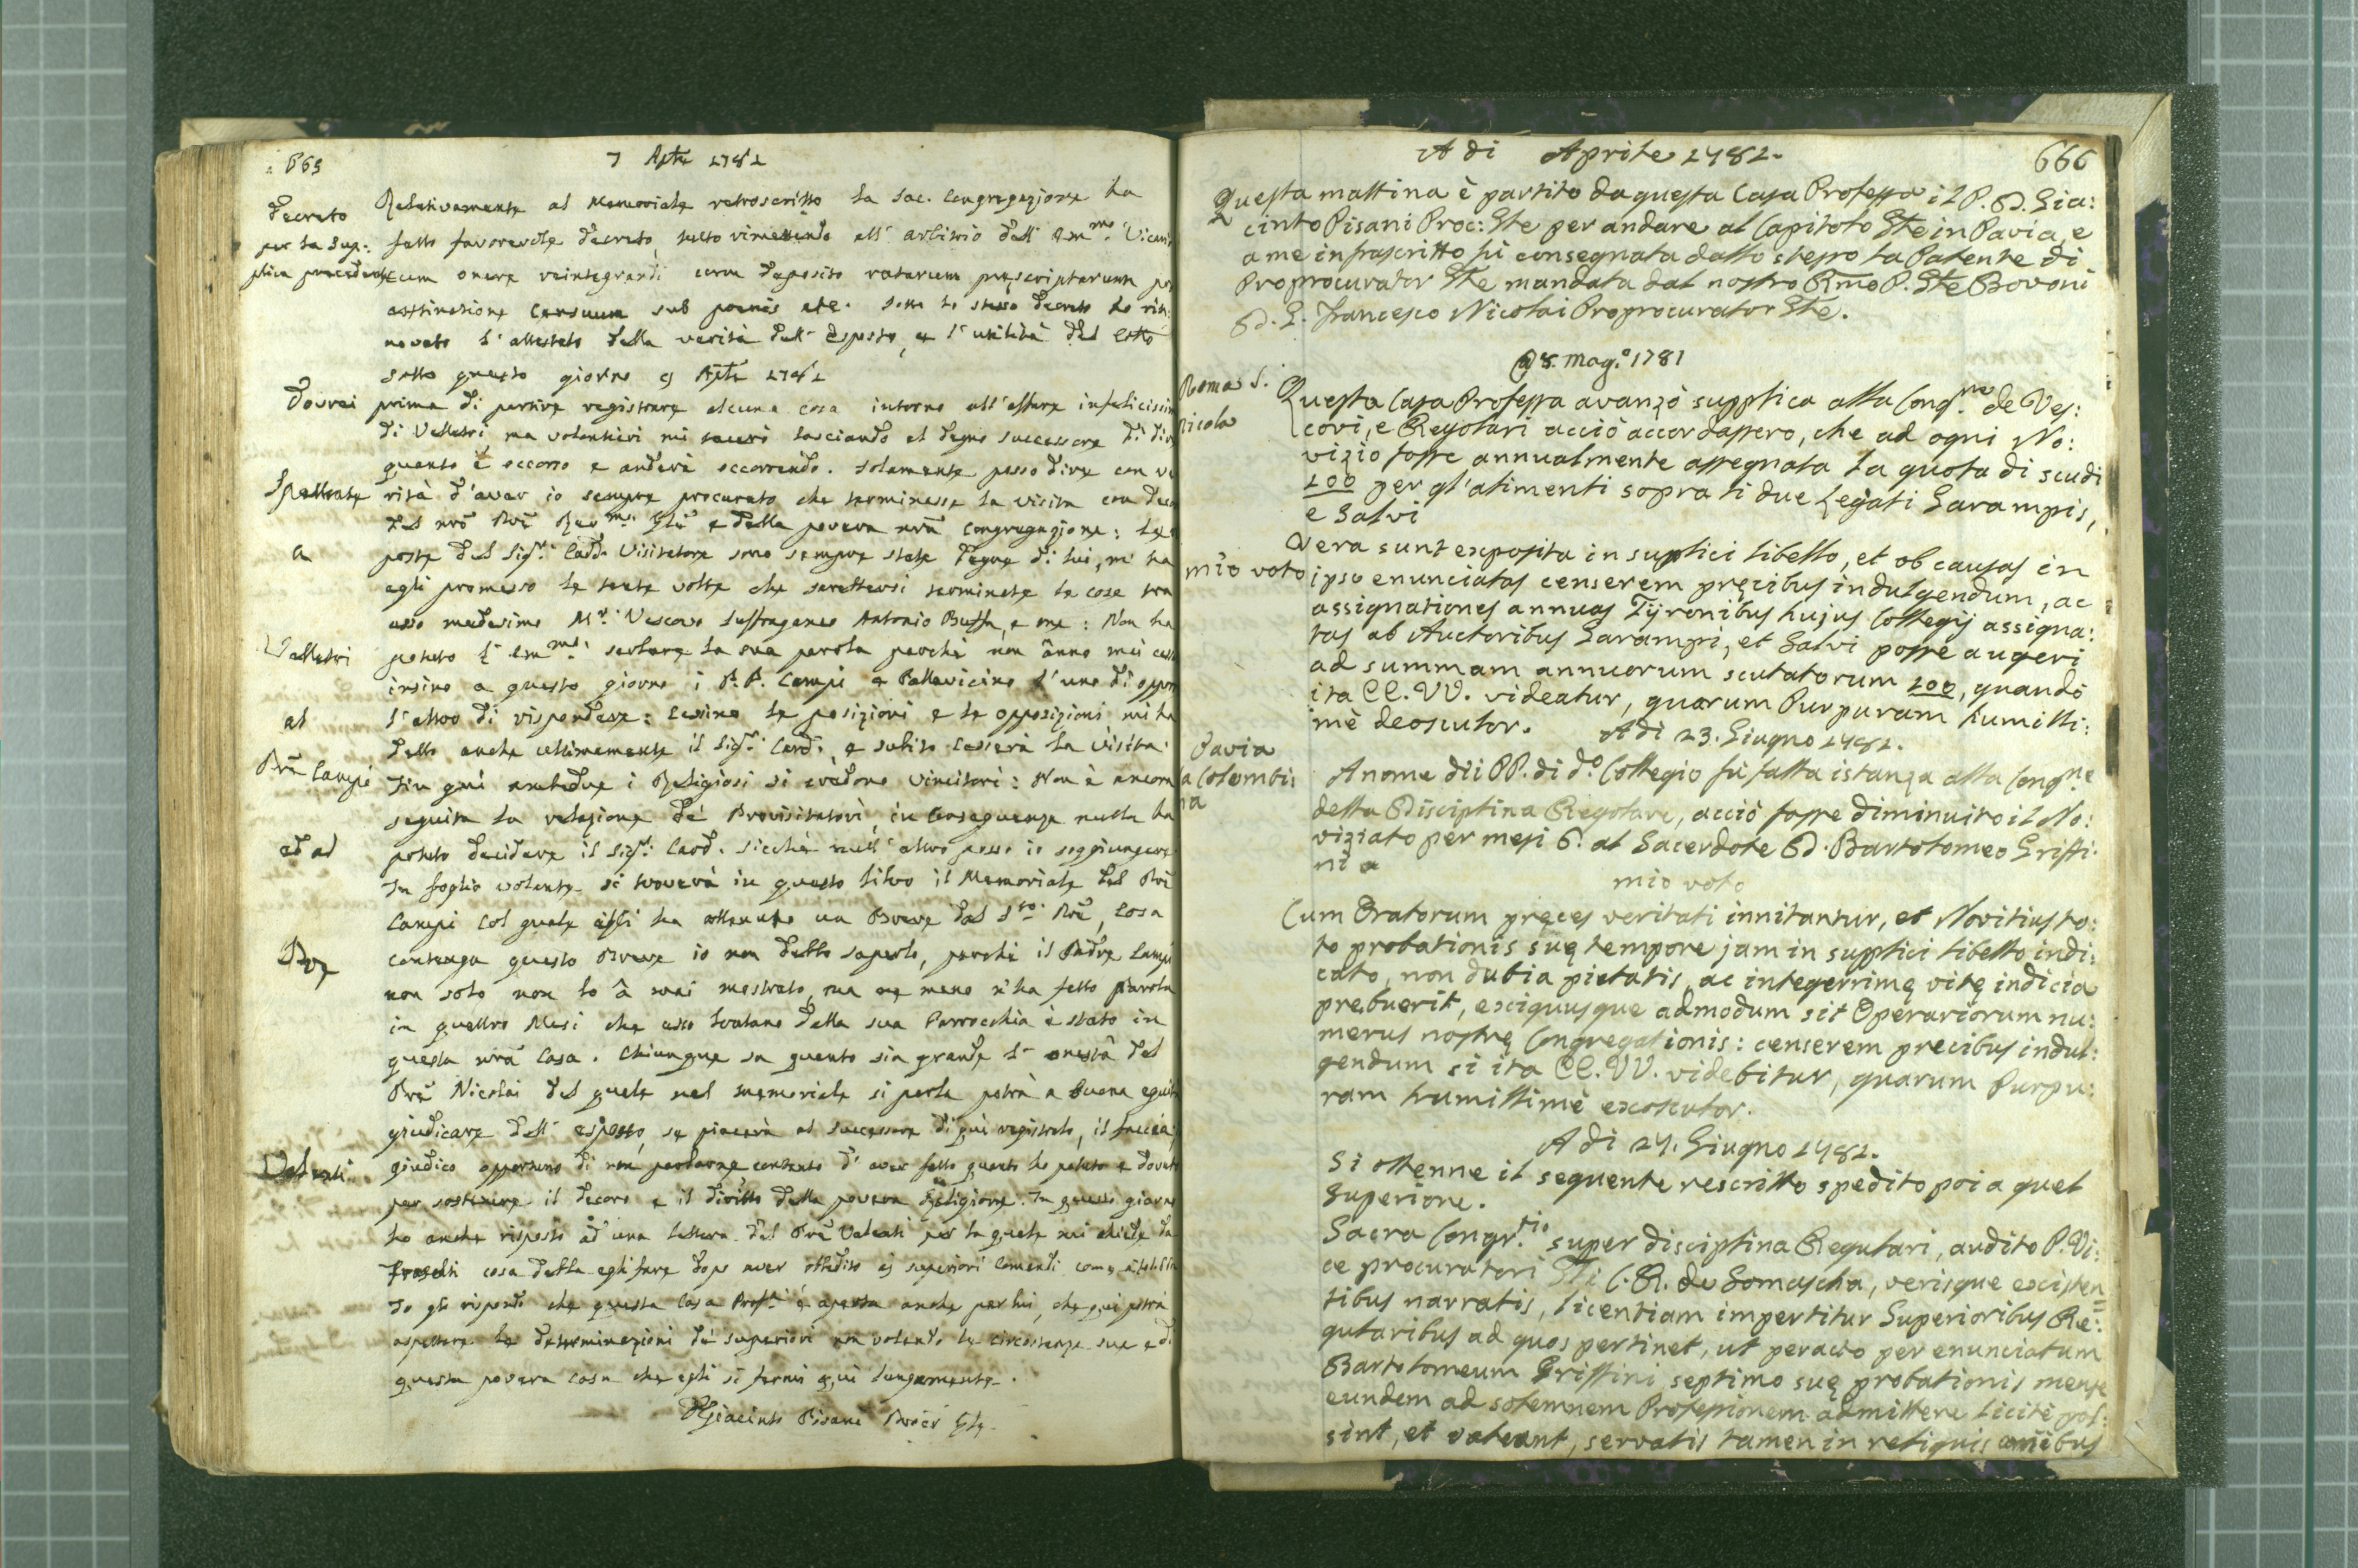 665
7 Aple 1781
Decreto
per la Sup:
plica precedente
Relativamente al Memoriale retroscritto la Sac. Congregazione ha
fatto favorevole decreto, tutto rimettendo all' arbitrio dell' Emmo. Vicario
cum onere reintegrandi cum deposito ratarum prescriptarum pro
extinctione Censuum sub poenis etc. Sotto lo stesso decreto ho rin:
novato l'attestato della verità dell' Esposto, e l'utilità del
sotto questo giorno 9 Aple 1781
Spettante
a
Velletri
al
Pre Campi
ed al
Pre
Valenti
Dovrei prima di partire registrare alcuna cosa intorno all'affare infelicissimo
di Velletri ma volentieri mi lasciando al degno successore di dire
quanto è occorso e anderà occorrendo. Solamente posso dire con ve
rità d'aver io sempre procurato che terminasse la visita con decoro
del nro Pre Revmo. Gle e della povera nra Congregazione: Le
poste del Sigr. Card. Visitatore sono sempre state degne di lui, m' ha
egli promesso le tante volte che sarebbersi terminate le cose tra
esso medesimo Mr. Vescovo Suffraganeo Antonio Buffa, e me: Non ha
potuto l' Emmo. serbare la sua parola perchè non ânno mai
insino a questo giorno i P.P. Campi e Pallavicino l'uno di oppor
l'altro di rispondere: le posizioni e le opposizioni mi ha
detto anche ultimamente il Sigr. Card., e subito cesserà la Visita.
Fin quì amendue i Religiosi si credono vincitori: Non è ancora
seguita la relazione de' Provisitatori, in Conseguenza nulla ha
potuto decidere il Sigr. Card. sicchè null' altro posso io soggiungere
In foglio volante si troverà in questo libro il Memoriale del Pre
Campi col quale egli ha ottenuto un Breve dal Sto. Pre, Cosa
contenga questo Breve io non debbo saperlo, perchè il Padre Campi
non solo non lo à mai mostrato, ma ne meno n'ha fatto parola
in quattro Mesi che esso lontano dalla sua Parrocchia è stato in
questa nra Casa. Chiunque sa quanto sia grande l' onestà del
Pre Nicolai del quale nel memoriale si parla potrà a buona equità
giudicare dell' esposto, se piacerà al successore di quì registrarlo, il faccia
giudico opportuno di non parlarne contento d' aver fatto quanto ho potuto e dovuto
per sostenere il decoro e il diritto della povera Religione. In questo giorno
ho anche risposto ad una lettera del Pre Valenti per la quale mi chiede da
cosa debba egli fare dopo aver obbedito ai superiori Comandi
Io gli rispondo che questa Casa Profa. è aperta anche per lui, che qui potrà
aspettare le determinazioni de' superiori non volendo le circostanze sue e di
questa povera Casa che egli si fermi quì lungamente.
D Giacinto Pisani Procr Gle.
666
A di Aprile 1781.
Questa mattina è partito da questa Casa Professa il P. D. Gia:
cinto Pisani Proc: Gle per andare al Capitolo Gle in Pavia, e
a me infrascritto fù consegnata dallo stesso la Patente di
Proprocurator Gle mandata dal nostro Rmo P. Gle Bovoni
D. G. Francesco Nicolai Proprocurator Gle.
8. Mag.º 1781
Roma S.
Nicola
Questa Casa Professa avanzò supplica alla Congne. de Ves:
covi, e Regolari acciò accordassero, che ad ogni No:
vizio fosse annualmente assegnata la quota di scudi
100 per gl'alimenti sopra li due Legati Garampis,
e Salvi
mio voto
Vera sunt exposita in suplici libello, et ob causas in
ipso enunciatas censerem pręcibus indulgendum, ac
assignationes annuas Tyronibus hujus Collegij assigna:
tas ab Auctoribus Garampi, et Salvi posse augeri
ad summam annuorum scutatorum 100, quando
ita EE. VV. videatur, quarum Purpuram humilli:
mè deosculor.
A di 23. Giugno 1781.
Pavia
la Colombi:
na
A nome dli PP. di do. Collegio fù fatta istanza alla Congne.
della Disciplina Regolare, acciò fosse diminuito il No:
viziato per mesi 6. al Sacerdote D. Bartolomeo Griffi:
ni
mio voto
Cum Oratorum pręces veritati innitantur, et Novitius to:
to probationis suę tempore jam in supplici libello indi:
cato, non dubia pietatis, ac integerrimę vitę indicia
prebuerit, exiguusque admodum sit Operariorum nu:
merus nostrę Congregationis: censerem precibus indul:
gendum si ita EE. VV. videbitur, quarum Purpu:
ram humillimè exosculor.
A di 27. Giugno 1781.
Si ottenne il seguente rescritto spedito poi a quel
Superiore.
Sacra Congr.tio super disciplina Regulari, audito P. Vi:
ce procuratori Gli C. R. de Somascha, verisque existen=
tibus narratis, licentiam impertitur Superioribus Re:
gularibus ad quos pertinet, ut peracto per enunciatum
Bartolomeum Griffini septimo suę probationis mense
eundem ad solemnem Professionem admittere licitè pos:
sint, et valeant, servatis tamen in reliquis omibus